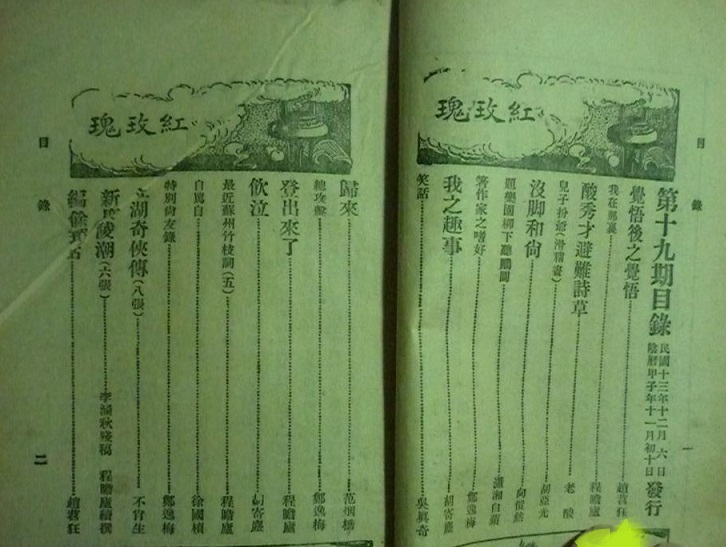 紅玫瑰
目錄
一
第十九期目錄 民國十三年十二月六日 陰曆甲子年十一月初十日 發行
覺悟後之覺悟 趙苕狂
我在那裏 程瞻廬
酸秀才避難詩草 老酸
兒子扮爺(滑稽畫) 胡亞光
沒脚和尙 向愷然
題樂園柳下聽鸝圖 瀟湘白蘋
著作家之嗜好 鄭逸梅
我之趣事 胡寄塵
笑話 吳眞奇
紅玫瑰
目錄
二
歸來 范烟橋
總攻擊 鄭逸梅
登出來了 程瞻廬
飮泣 胡寄塵
最近蘇州竹枝詞(五) 程瞻廬
自罵自 徐國楨
特別尙友錄 鄭逸梅
江湖奇俠傳(八張) 不肖生
新廣陵潮(六張) 李涵秋殘稿 程瞻廬續撰
編餘瑣話 趙苕狂